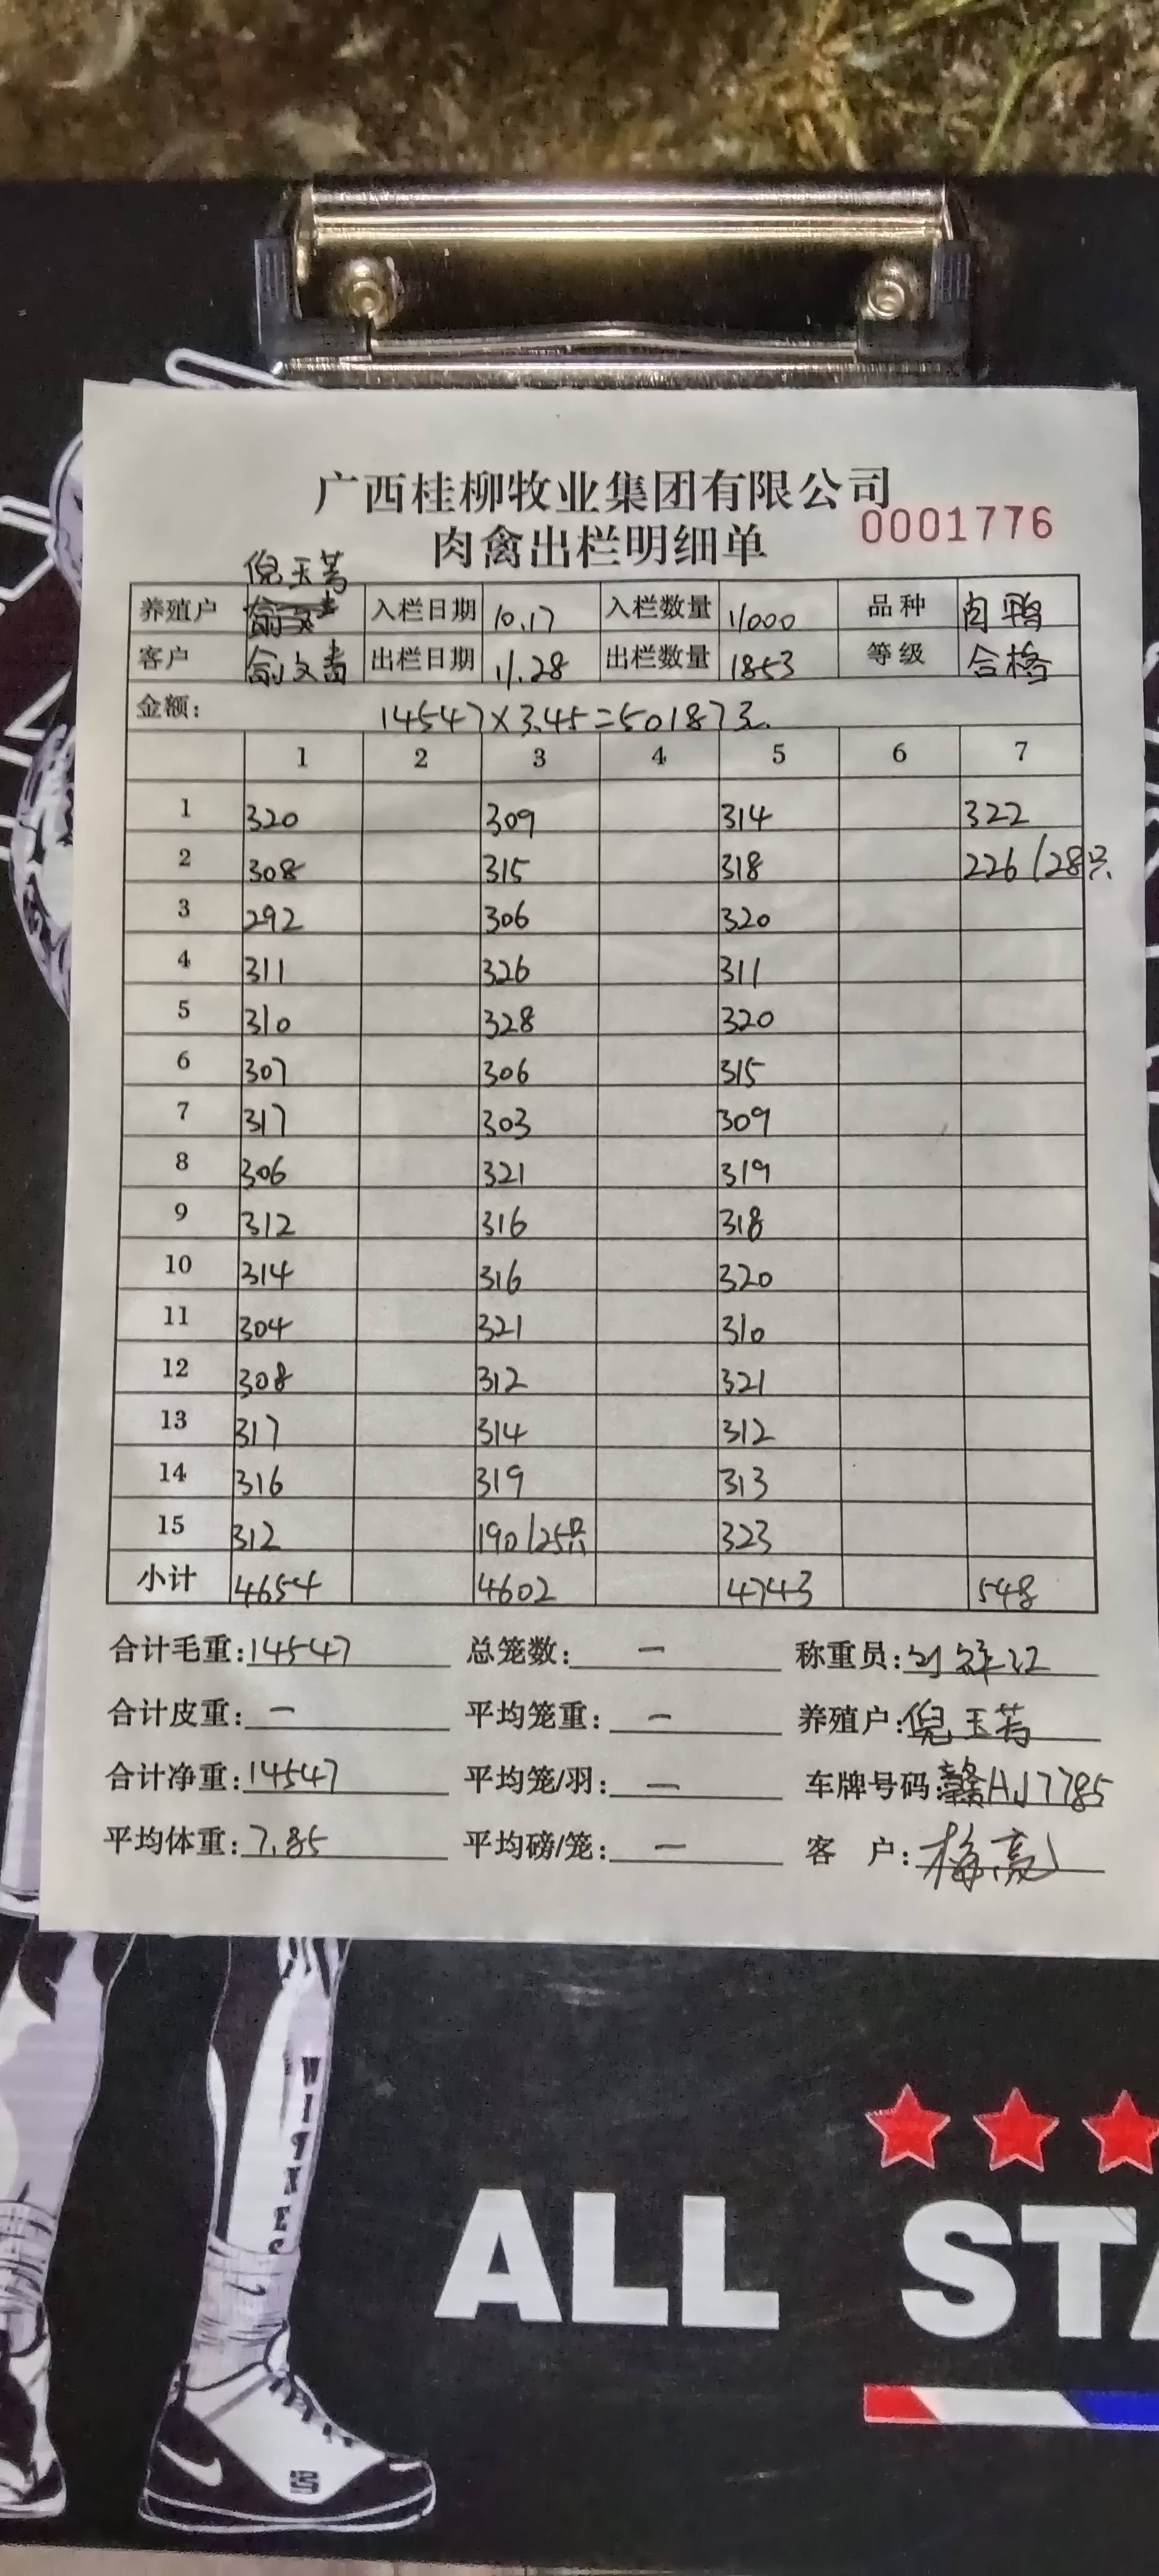 广西桂柳牧业集团有限公司
肉禽出栏明细单 0001776
倪玉芳
养殖户 入栏日期 10.17 入栏数量 11000 品种 肉鸭
客户 俞文 出栏日期 11.28 出栏数量 1853 等级 合格
金额: 14547×3.45=50187元
1 2 3 4 5 6 7
1 320 309 314 322
2 308 315 318 226/28只
3 292 306 320
4 311 326 311
5 310 328 320
6 307 306 315
7 317 303 309
8 306 321 319
9 312 316 318
10 314 316 320
11 304 321 310
12 308 312 321
13 317 314 312
14 316 319 313
15 312 190/25只 323
小计 4654 4602 4743 548
合计毛重: 14547 总笼数: — 称重员: 刘
合计皮重: — 平均笼重: — 养殖户: 倪玉芳
合计净重: 14547 平均笼/羽: — 车牌号码: 赣HJ7785
平均体重: 7.85 平均磅/笼: — 客 户: 梅亮
ALL STA